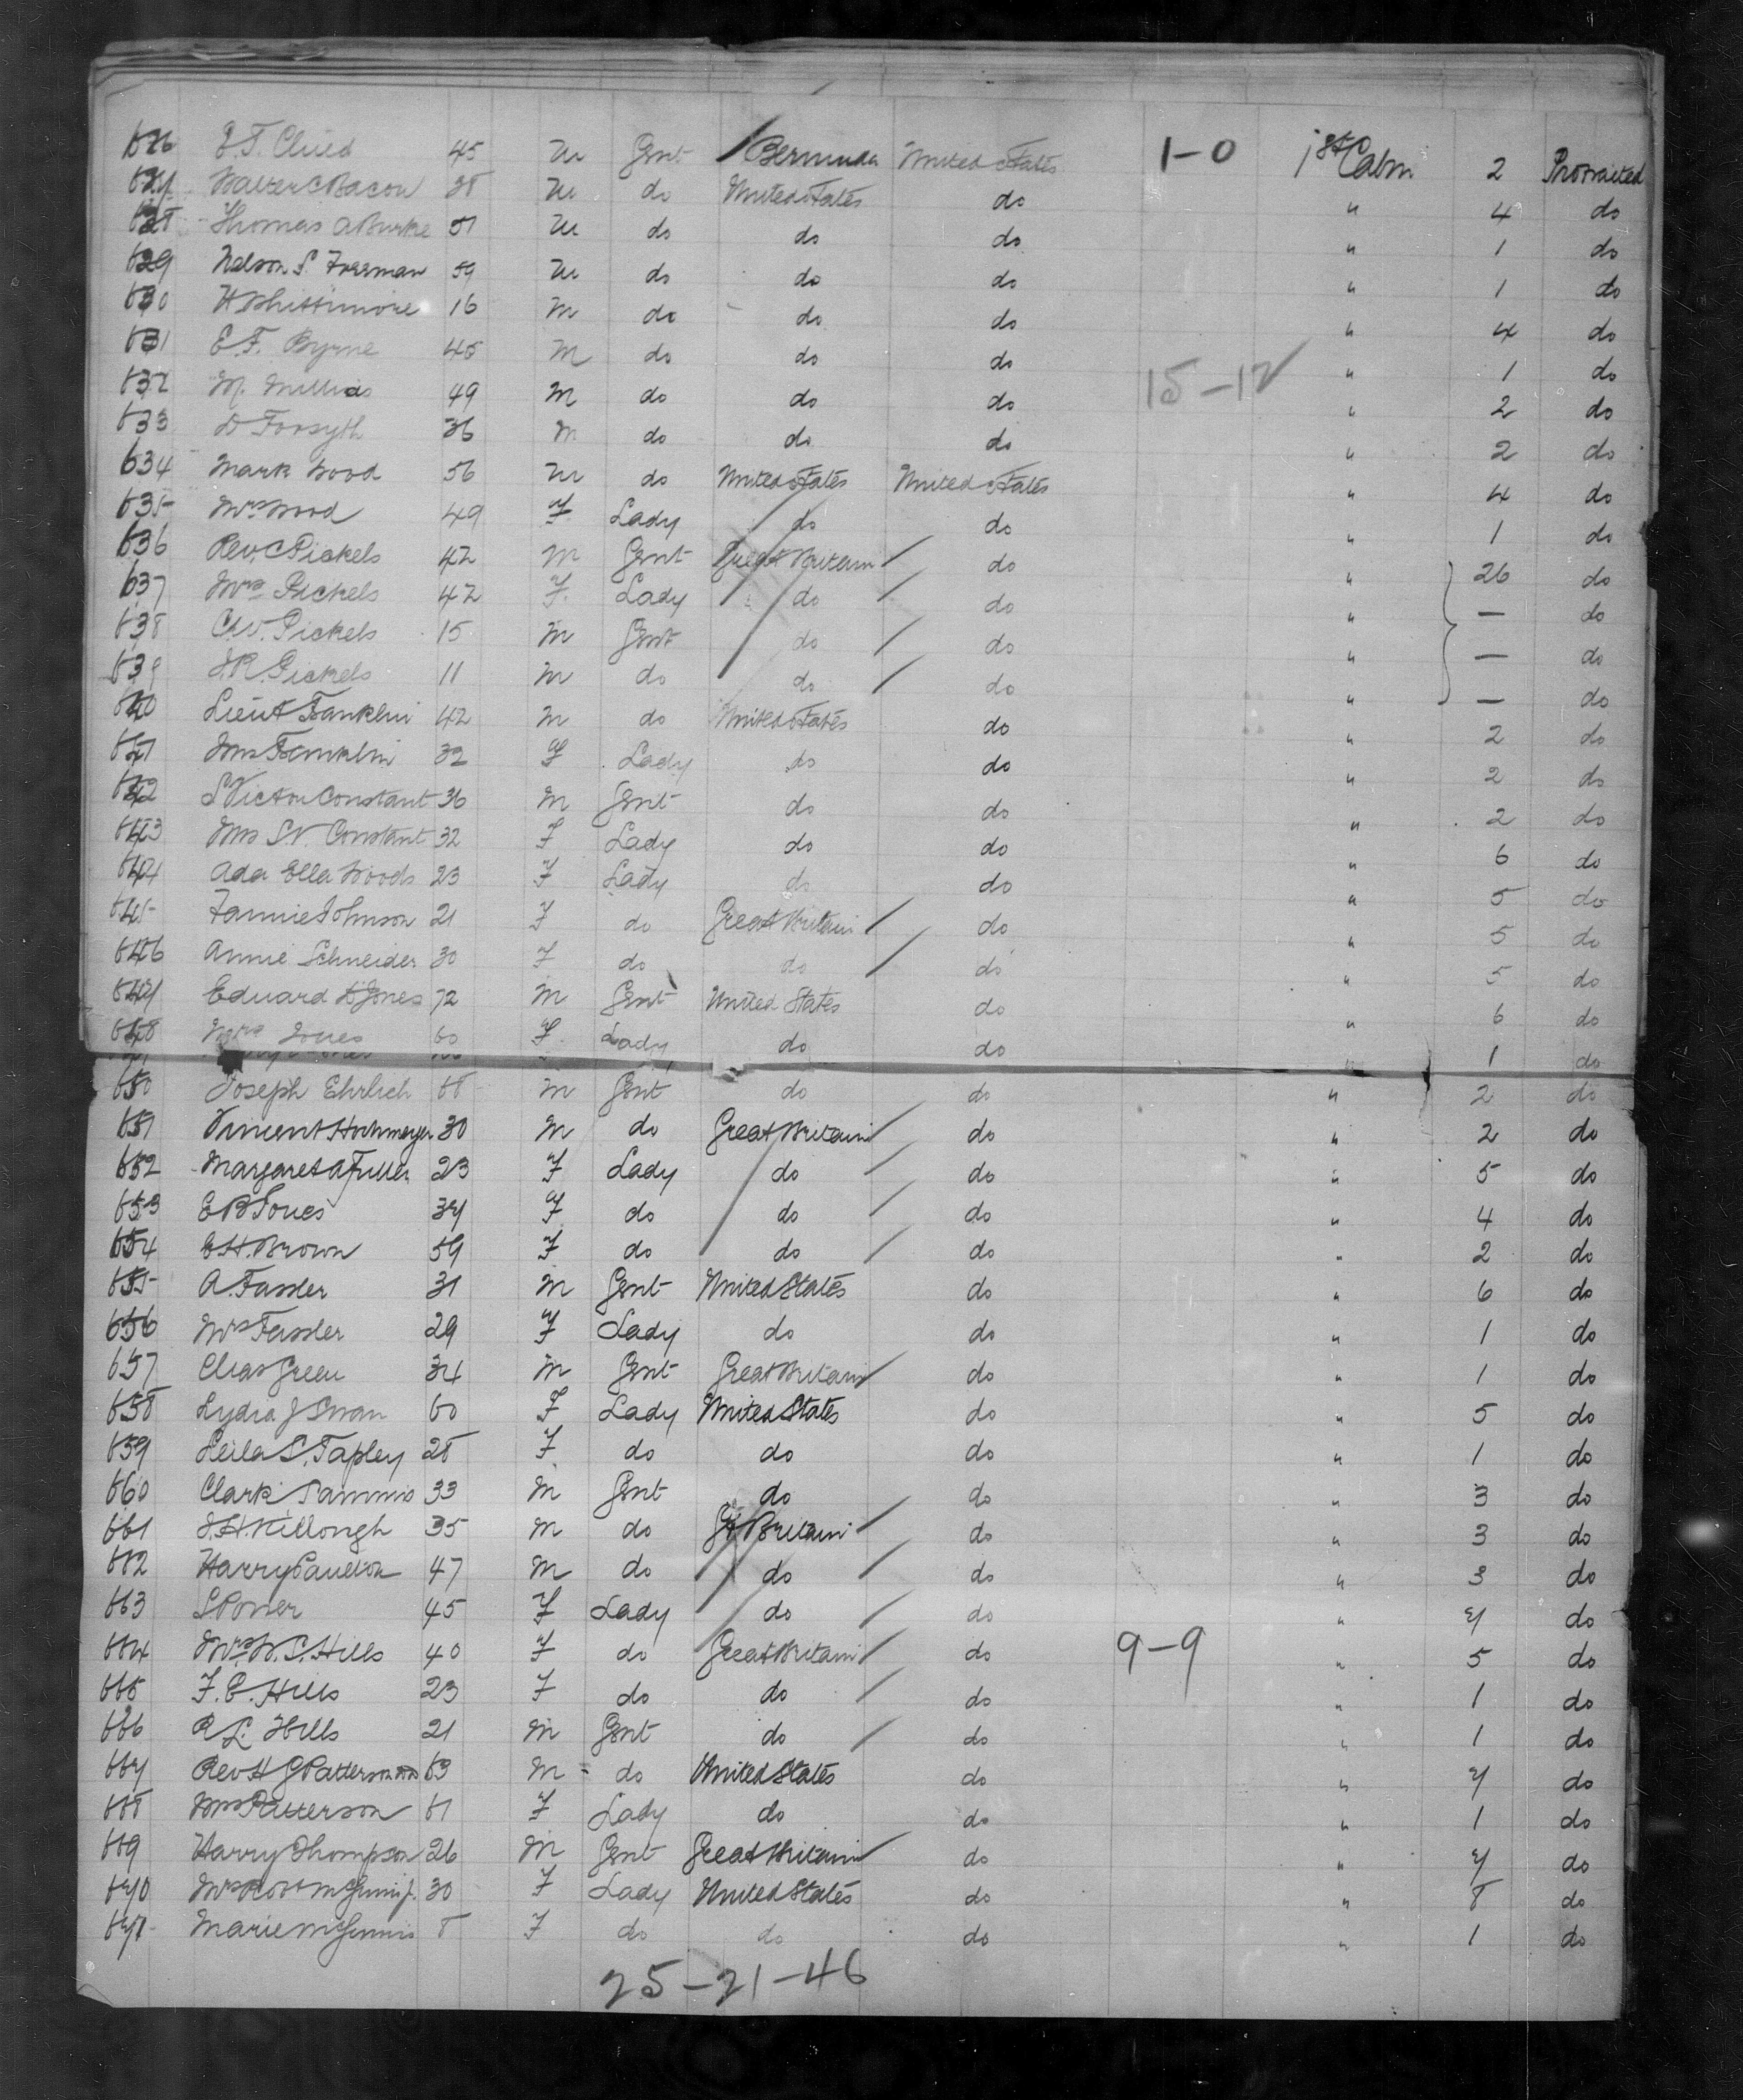 626 E.T. Child 45 M Gent Bermuda United States 1-0 1st Cabin 2 Protracted
627 Walter C Bacon 38 M do United States do " 4 do
628 Thomas A Burke 51 M do do do " 1 do
629 Nelson S. Freeman 59 M do do do " 1 do
630 H Whittimore 16 M do do do " 4 do
631 E.F. Byrne 45 M do do do " 1 do
632 M. 49 M do do do 15-12 " 2 do
633 D Forsyth 36 M do do do " 2 do
634 Mark Wood 56 M do United States United States " 4 do
635 Mrs Wood 49 F Lady do do " 1 do
636 Rev. C Pickels 42 M Gent Great Britain do " 26 do
637 Mrs Pickels 42 F Lady do do " — do
638 C.W. Pickels 15 M Gent do do " — do
639 J.R. Pickels 11 M do do do " — do
640 Lieut Franklin 42 M do United States do " 2 do
641 Mrs Franklin 32 F Lady do do " 2 do
642 S Victor Constant 36 M Gent do do " 2 do
643 Mrs S.V. Constant 32 F Lady do do " 6 do
644 Ada Ella Woods 23 F Lady do do " 5 do
645 Fannie Johnson 21 F do Great Britain do " 5 do
646 Annie Schneider 30 F do do do " 5 do
647 Edward D Jones 72 M Gent United States do " 6 do
648 Mrs Jones 60 F Lady do do " 1 do
650 Joseph Ehrlich 68 M Gent do do " 2 do
651 Vincent Hochmeyer 30 M do Great Britain do " 2 do
652 Margaret A Fuller 23 F Lady do do " 5 do
653 E B Jones 37 F do do do " 4 do
654 E.H. Brown 59 F do do do " 2 do
655 A. Fassler 31 M Gent United States do " 6 do
656 Mrs Fassler 29 F Lady do do " 1 do
657 Chas Green 34 M Gent Great Britain do " 1 do
658 Lydia J Swan 60 F Lady United States do " 5 do
659 Leila S. Tapley 28 F do do do " 1 do
660 Clark Sammis 33 M Gent do do " 3 do
661 J.H. Killough 35 M do Gt Britain do " 3 do
662 Harry Paulton 47 M do do do " 3 do
663 45 F Lady do do " 7 do
664 Mrs W.S. Hills 40 F do Great Britain do 9-9 " 5 do
665 F.E. Hills 23 F do do do " 1 do
666 R L. Hills 21 M Gent do do " 1 do
667 Rev H G Patterson 63 M do United States do " 7 do
668 Mrs Patterson 61 F Lady do do " 1 do
669 Harry Thompson 26 M Gent Great Britain do " 7 do
670 Mrs Robt 30 F Lady United States do " 8 do
671 Marie McGinnis 8 F do do do " 1 do
25-21-46